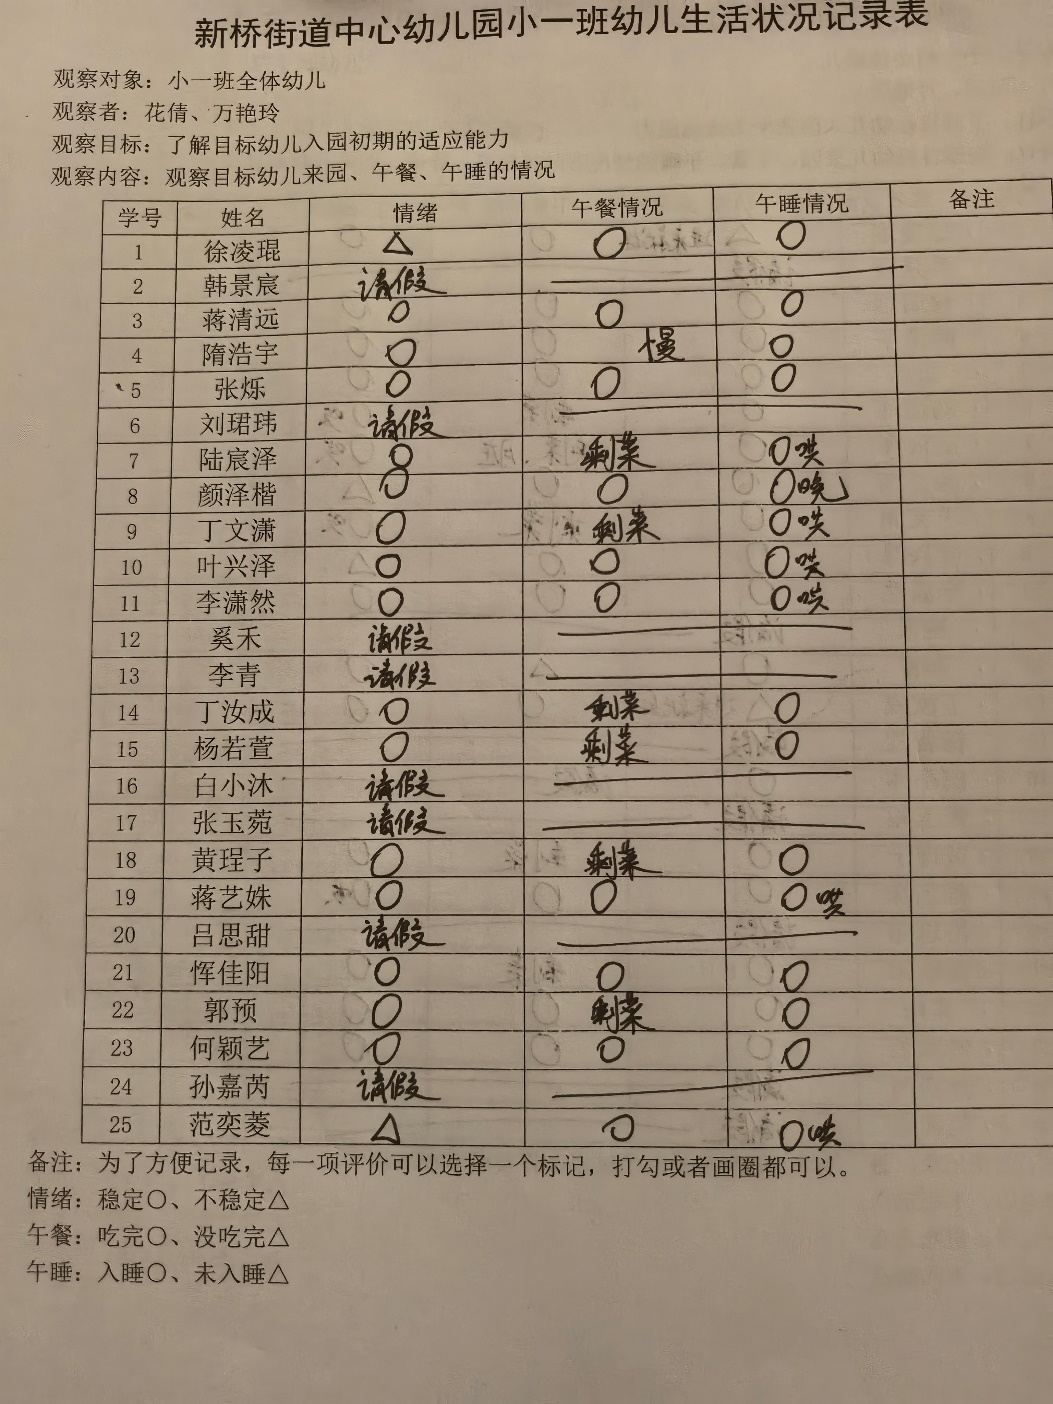 新桥街道中心幼儿园小一班幼儿生活状况记录表
观察对象：小一班全体幼儿
观察者：花倩、万艳玲
观察目标：了解目标幼儿入园初期的适应能力
观察内容：观察目标幼儿来园、午餐、午睡的情况
学号 姓名 情绪 午餐情况 午睡情况 备注
1 徐凌琨 △ ○ ○
2 韩景宸 请假
3 蒋清远 ○ ○ ○
4 隋浩宇 ○ 慢 ○
5 张烁 ○ ○ ○
6 刘珺玮 请假
7 陆宸泽 ○ 剩菜 ○哄
8 颜泽楷 ○ ○ ○晚
9 丁文潇 ○ 剩菜 ○哄
10 叶兴泽 ○ ○ ○哄
11 李潇然 ○ ○ ○哄
12 奚禾 请假
13 李青 请假
14 丁汝成 ○ 剩菜 ○
15 杨若萱 ○ 剩菜 ○
16 白小沐 请假
17 张玉菀 请假
18 黄珵子 ○ 剩菜 ○
19 蒋艺姝 ○ ○ ○哄
20 吕思甜 请假
21 恽佳阳 ○ ○ ○
22 郭预 ○ 剩菜 ○
23 何颖艺 ○ ○ ○
24 孙嘉芮 请假
25 范奕菱 △ ○ ○哄
备注：为了方便记录，每一项评价可以选择一个标记，打勾或者画圈都可以。
情绪：稳定○、不稳定△
午餐：吃完○、没吃完△
午睡：入睡○、未入睡△